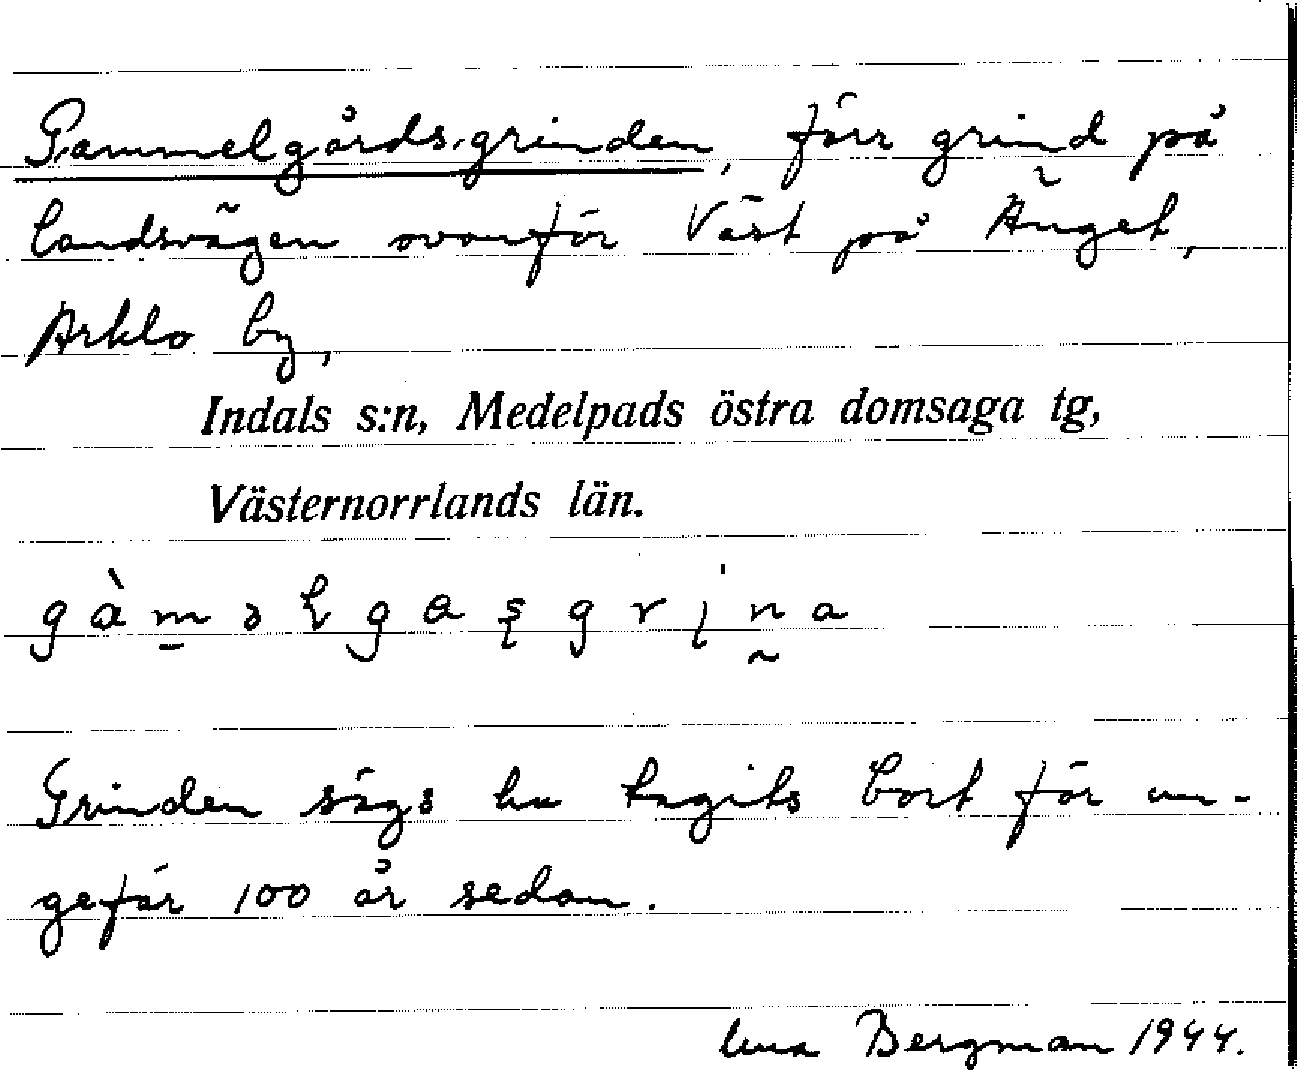 Gammelgårdsgrinden, förr grind på
landsvägen ovanför Väst på Änget,
Arklo by,
Indals s:n, Medelpads östra domsaga tg,
Västernorrlands län.
Grinden sägs ha tagits bort för un-
gefär 100 år sedan.
Bergman 1944.